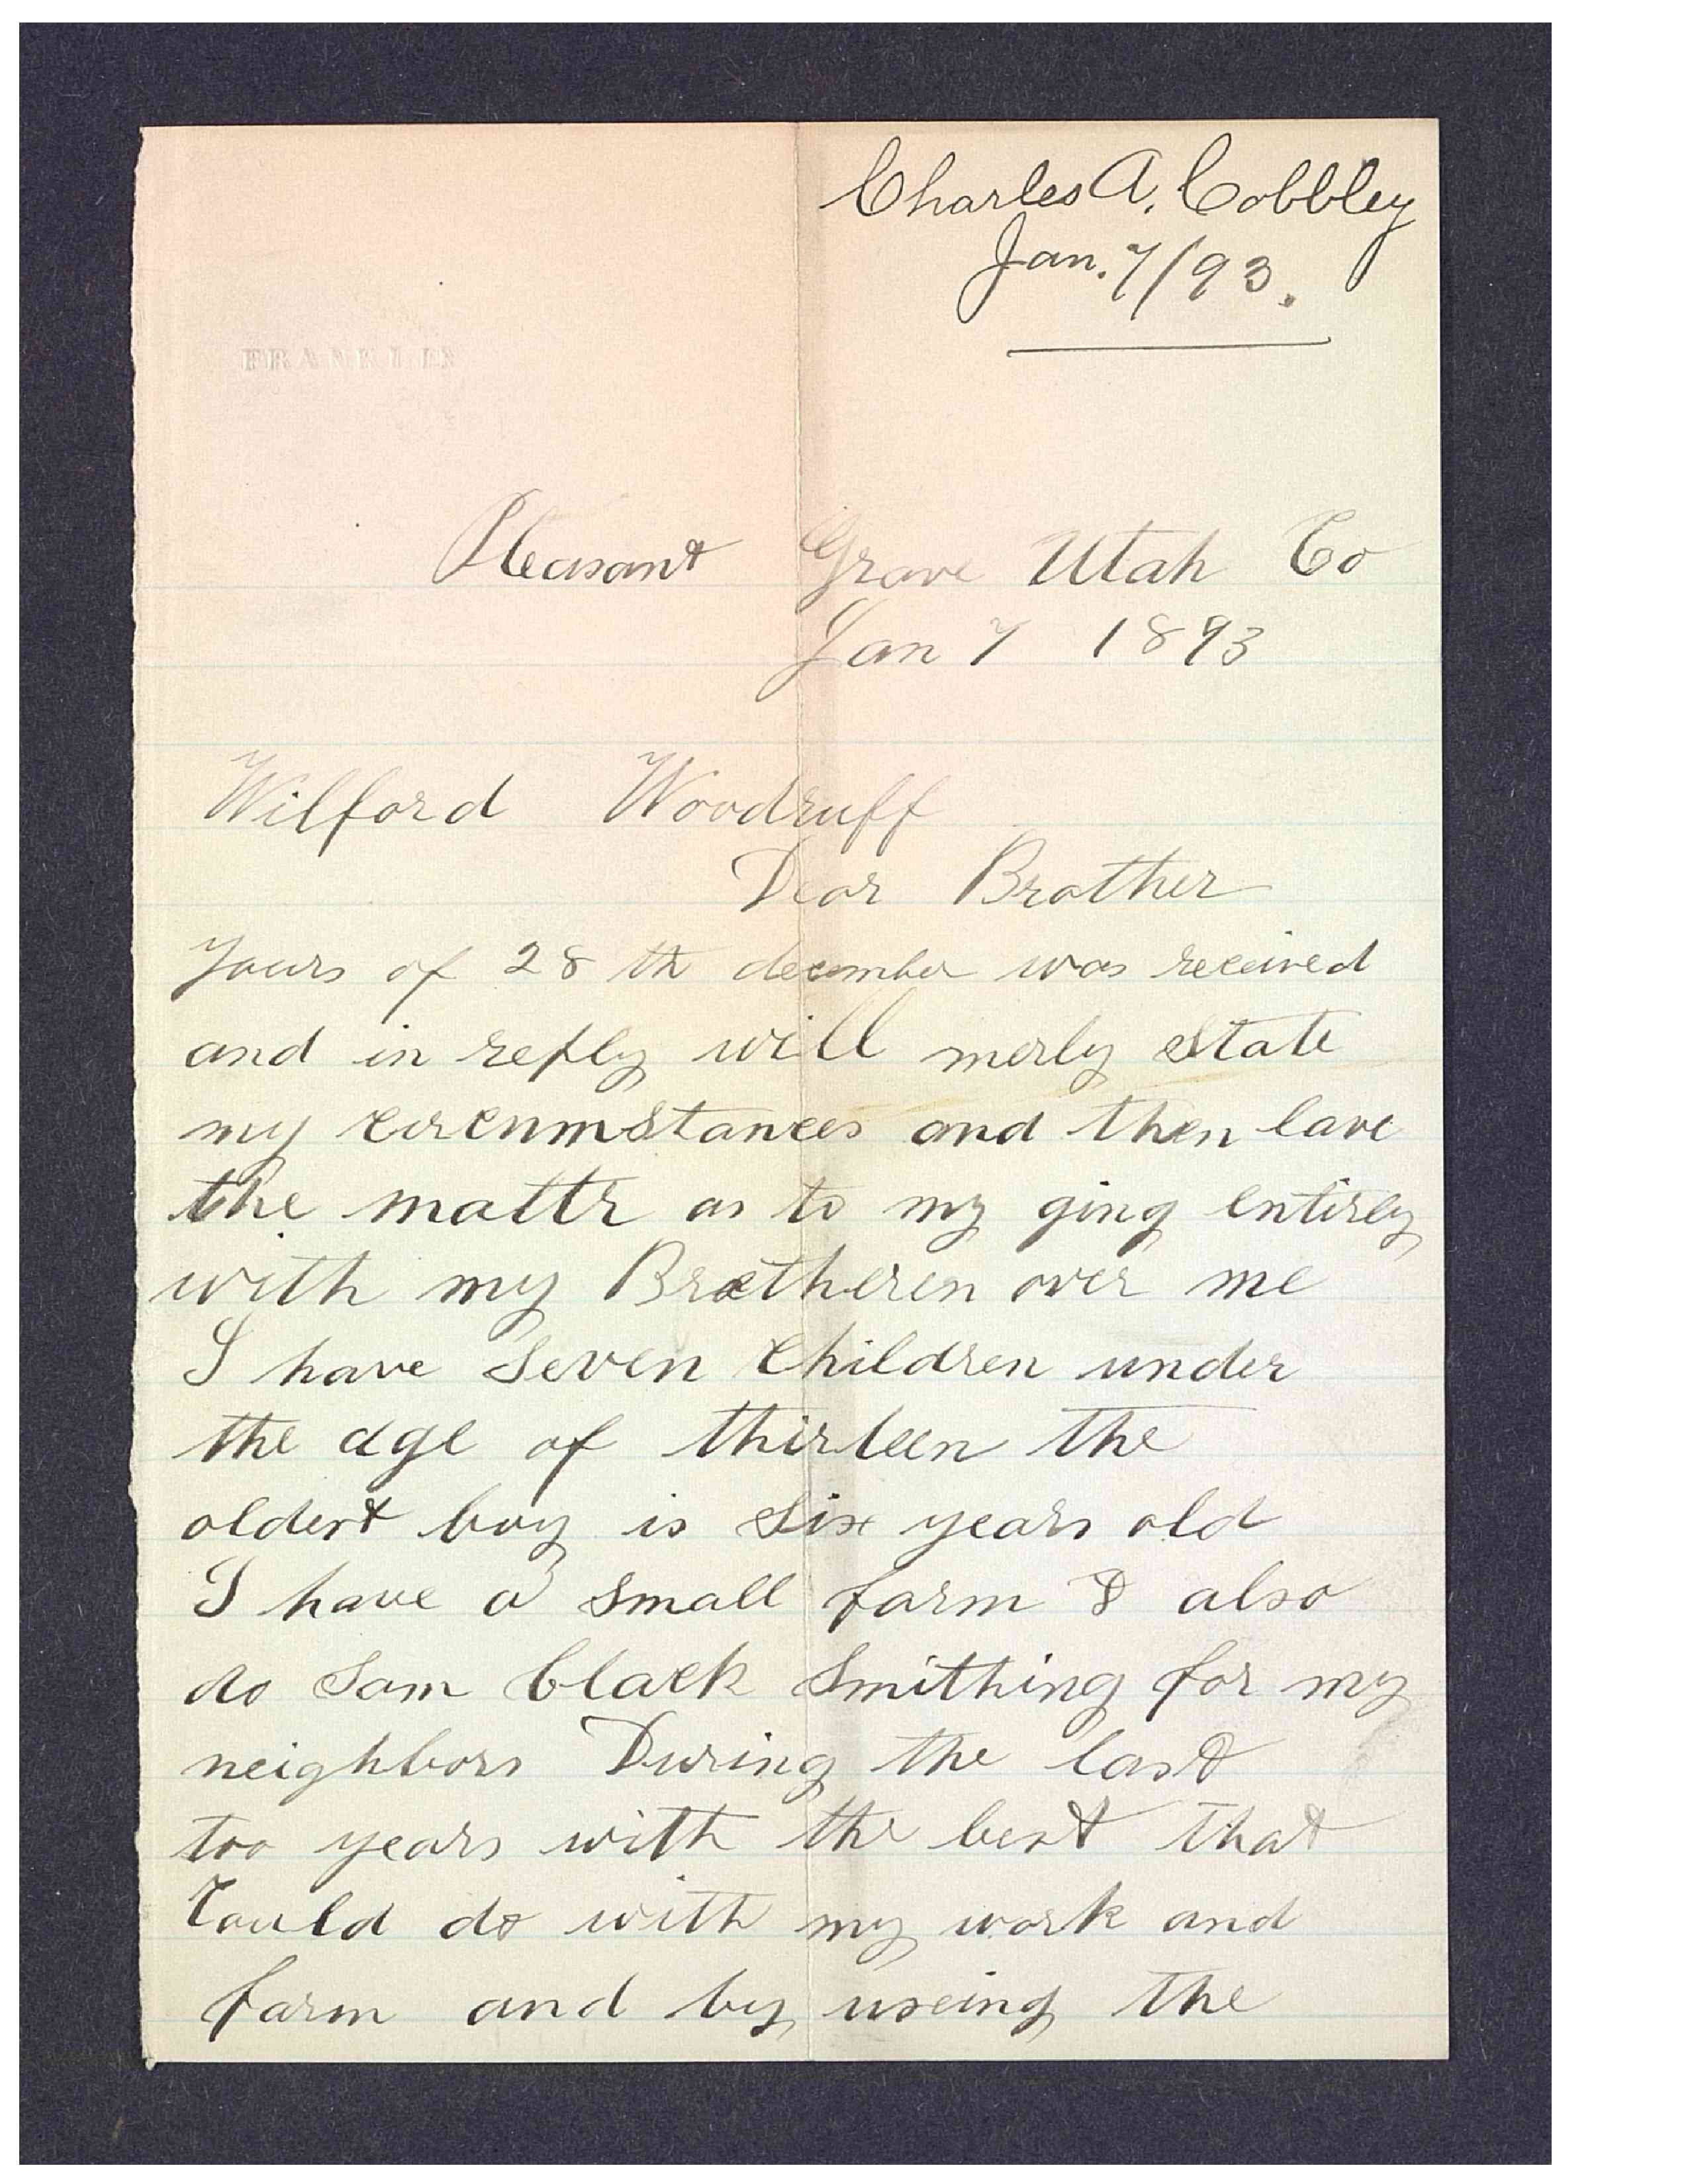 Charles A. Cobbley
Jan. 7/93.
FRANKLIN
Pleasant Grove Utah Co
Jan 7 1893
Wilford Woodruff
Dear Brother
Yours of 28 th december was received
and in reply will merly state
my circumstances and then lave
the mattr as to my ging entirly
with my Bretheren over me
I have seven children under
the age of thirteen the
oldest boy is six years old
I have a small farm & also
do som black smithing for my
neighbors During the last
too years with the best that
Could do with my work and
farm and by useing the